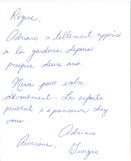 Régine,
Adriano a tellement appris
à la garderie depuis
presque deux ans.
Merci pour votre
dévouement. Les enfants
peuvent s'épanouir chez
vous.
Adriano